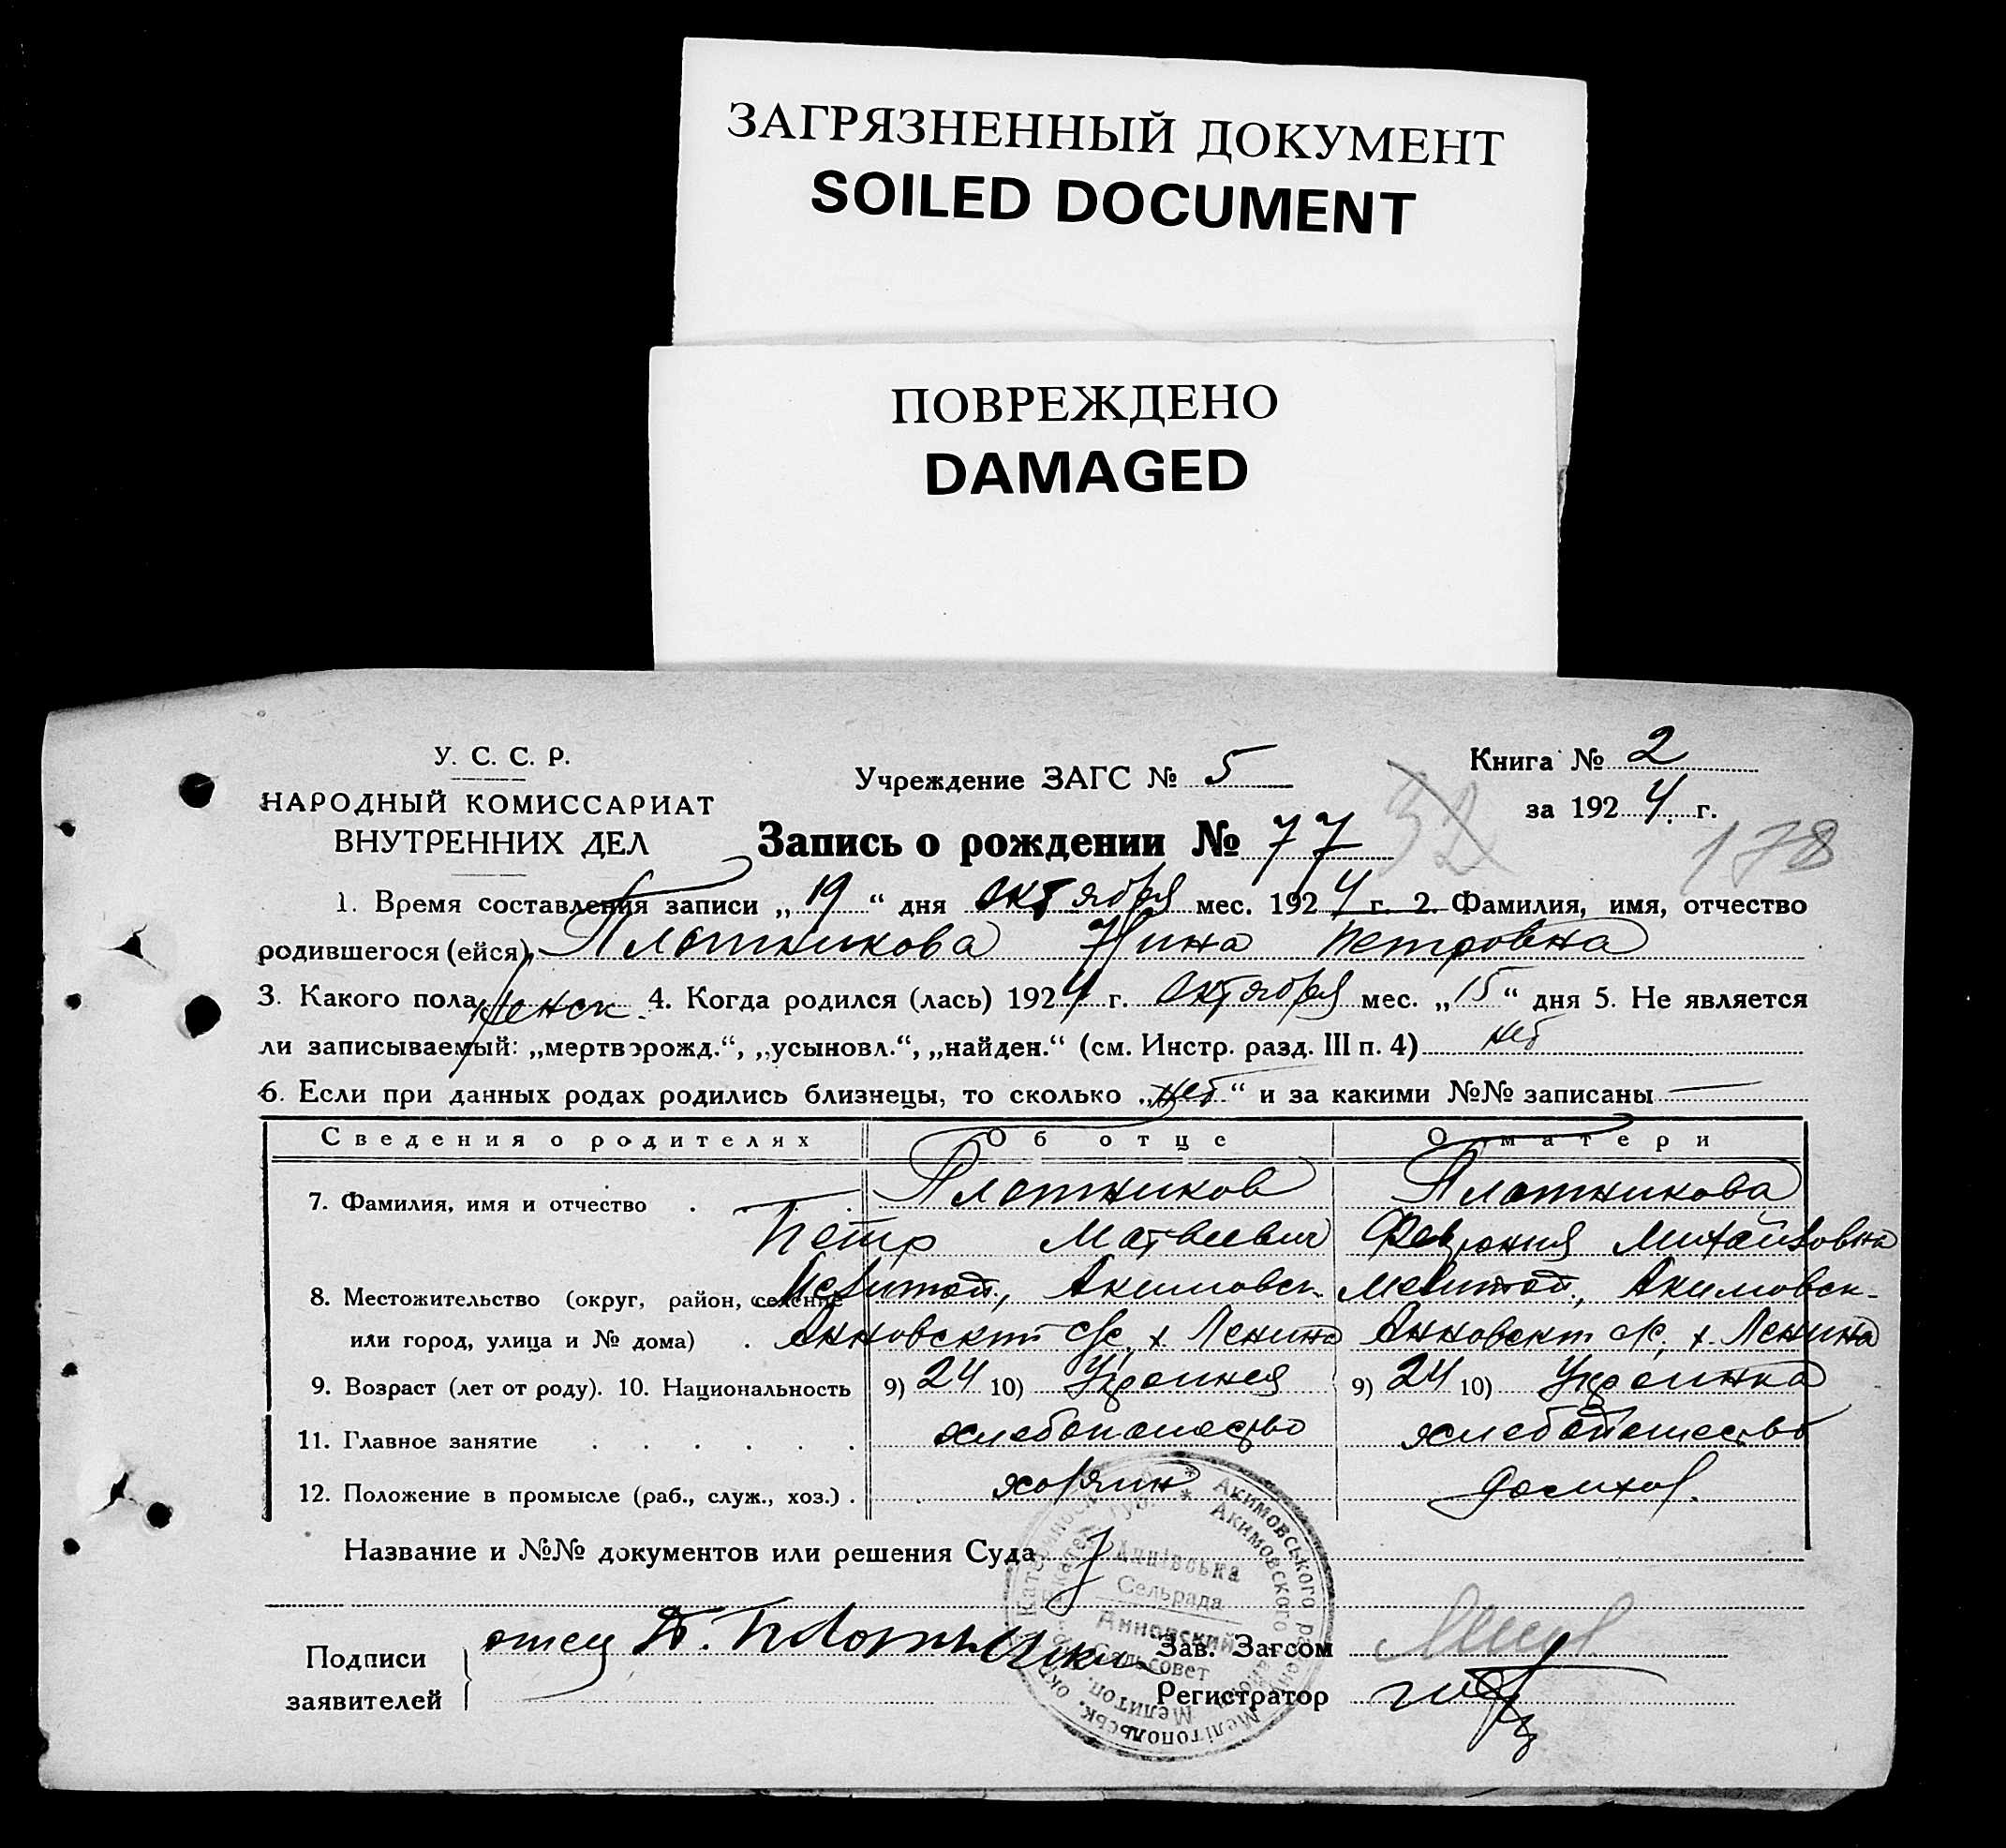 ЗАГРЯЗНЕННЫЙ ДОКУМЕНТ
SOILED DOCUMENT
ПОВРЕЖДЕНО
DAMAGED
У. С. С. Р.
НАРОДНЫЙ КОМИССАРИАТ
ВНУТРЕННИХ ДЕЛ
Учреждение ЗАГС № 5
Книга № 2
за 1924 г.
Запись о рождении № 77
32
178
1. Время составления записи „19“ дня октября мес. 1924 г. 2. Фамилия, имя, отчество
родившегося (ейся) Плотникова Нина Петровна
3. Какого пола женск. 4. Когда родился (лась) 1924 г. октября мес. „15“ дня 5. Не является
ли записываемый: „мертворожд.“, „усыновл.“, „найден.“ (см. Инстр. разд. III п. 4) нет
6. Если при данных родах родились близнецы, то сколько „нет“ и за какими №№ записаны —
Сведения о родителях Об отце О матери
7. Фамилия, имя и отчество . . . Плотников Плотникова
Петр Матвеевич Феврония Михайловна
8. Местожительство (округ, район, селение Мелитоп., Акимовск. Мелитоп., Акимовск.
или город, улица и № дома) . Анновский с/с. х. Ленина Анновский с/с. х. Ленина
9. Возраст (лет от роду). 10. Национальность 9) 24 10) 9) 24 10) Украинка
11. Главное занятие . . . . . . хлебопашество хлебопашество
12. Положение в промысле (раб., служ., хоз.) . хозяин домхоз.
Название и №№ документов или решения Суда
Акимовського
Акимовского
Аннівська
Сельрада
Анновский
Сельсовет
Мелитоп.
Мелітопольськ. окр.
Подписи
заявителей
отец П. Плотников
Зав. Загсом
Регистратор